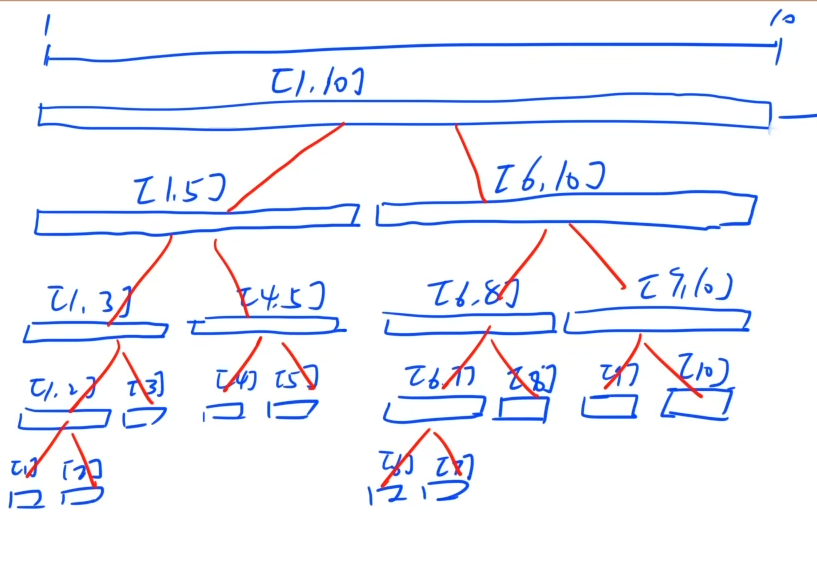 1 10
[1,10]
[1.5] [6,10]
[1,3] [4.5] [6,8] [9,10]
[1,2] [3] [4] [5] [6,7] [8] [9] [10]
[1] [2] [6] [7]